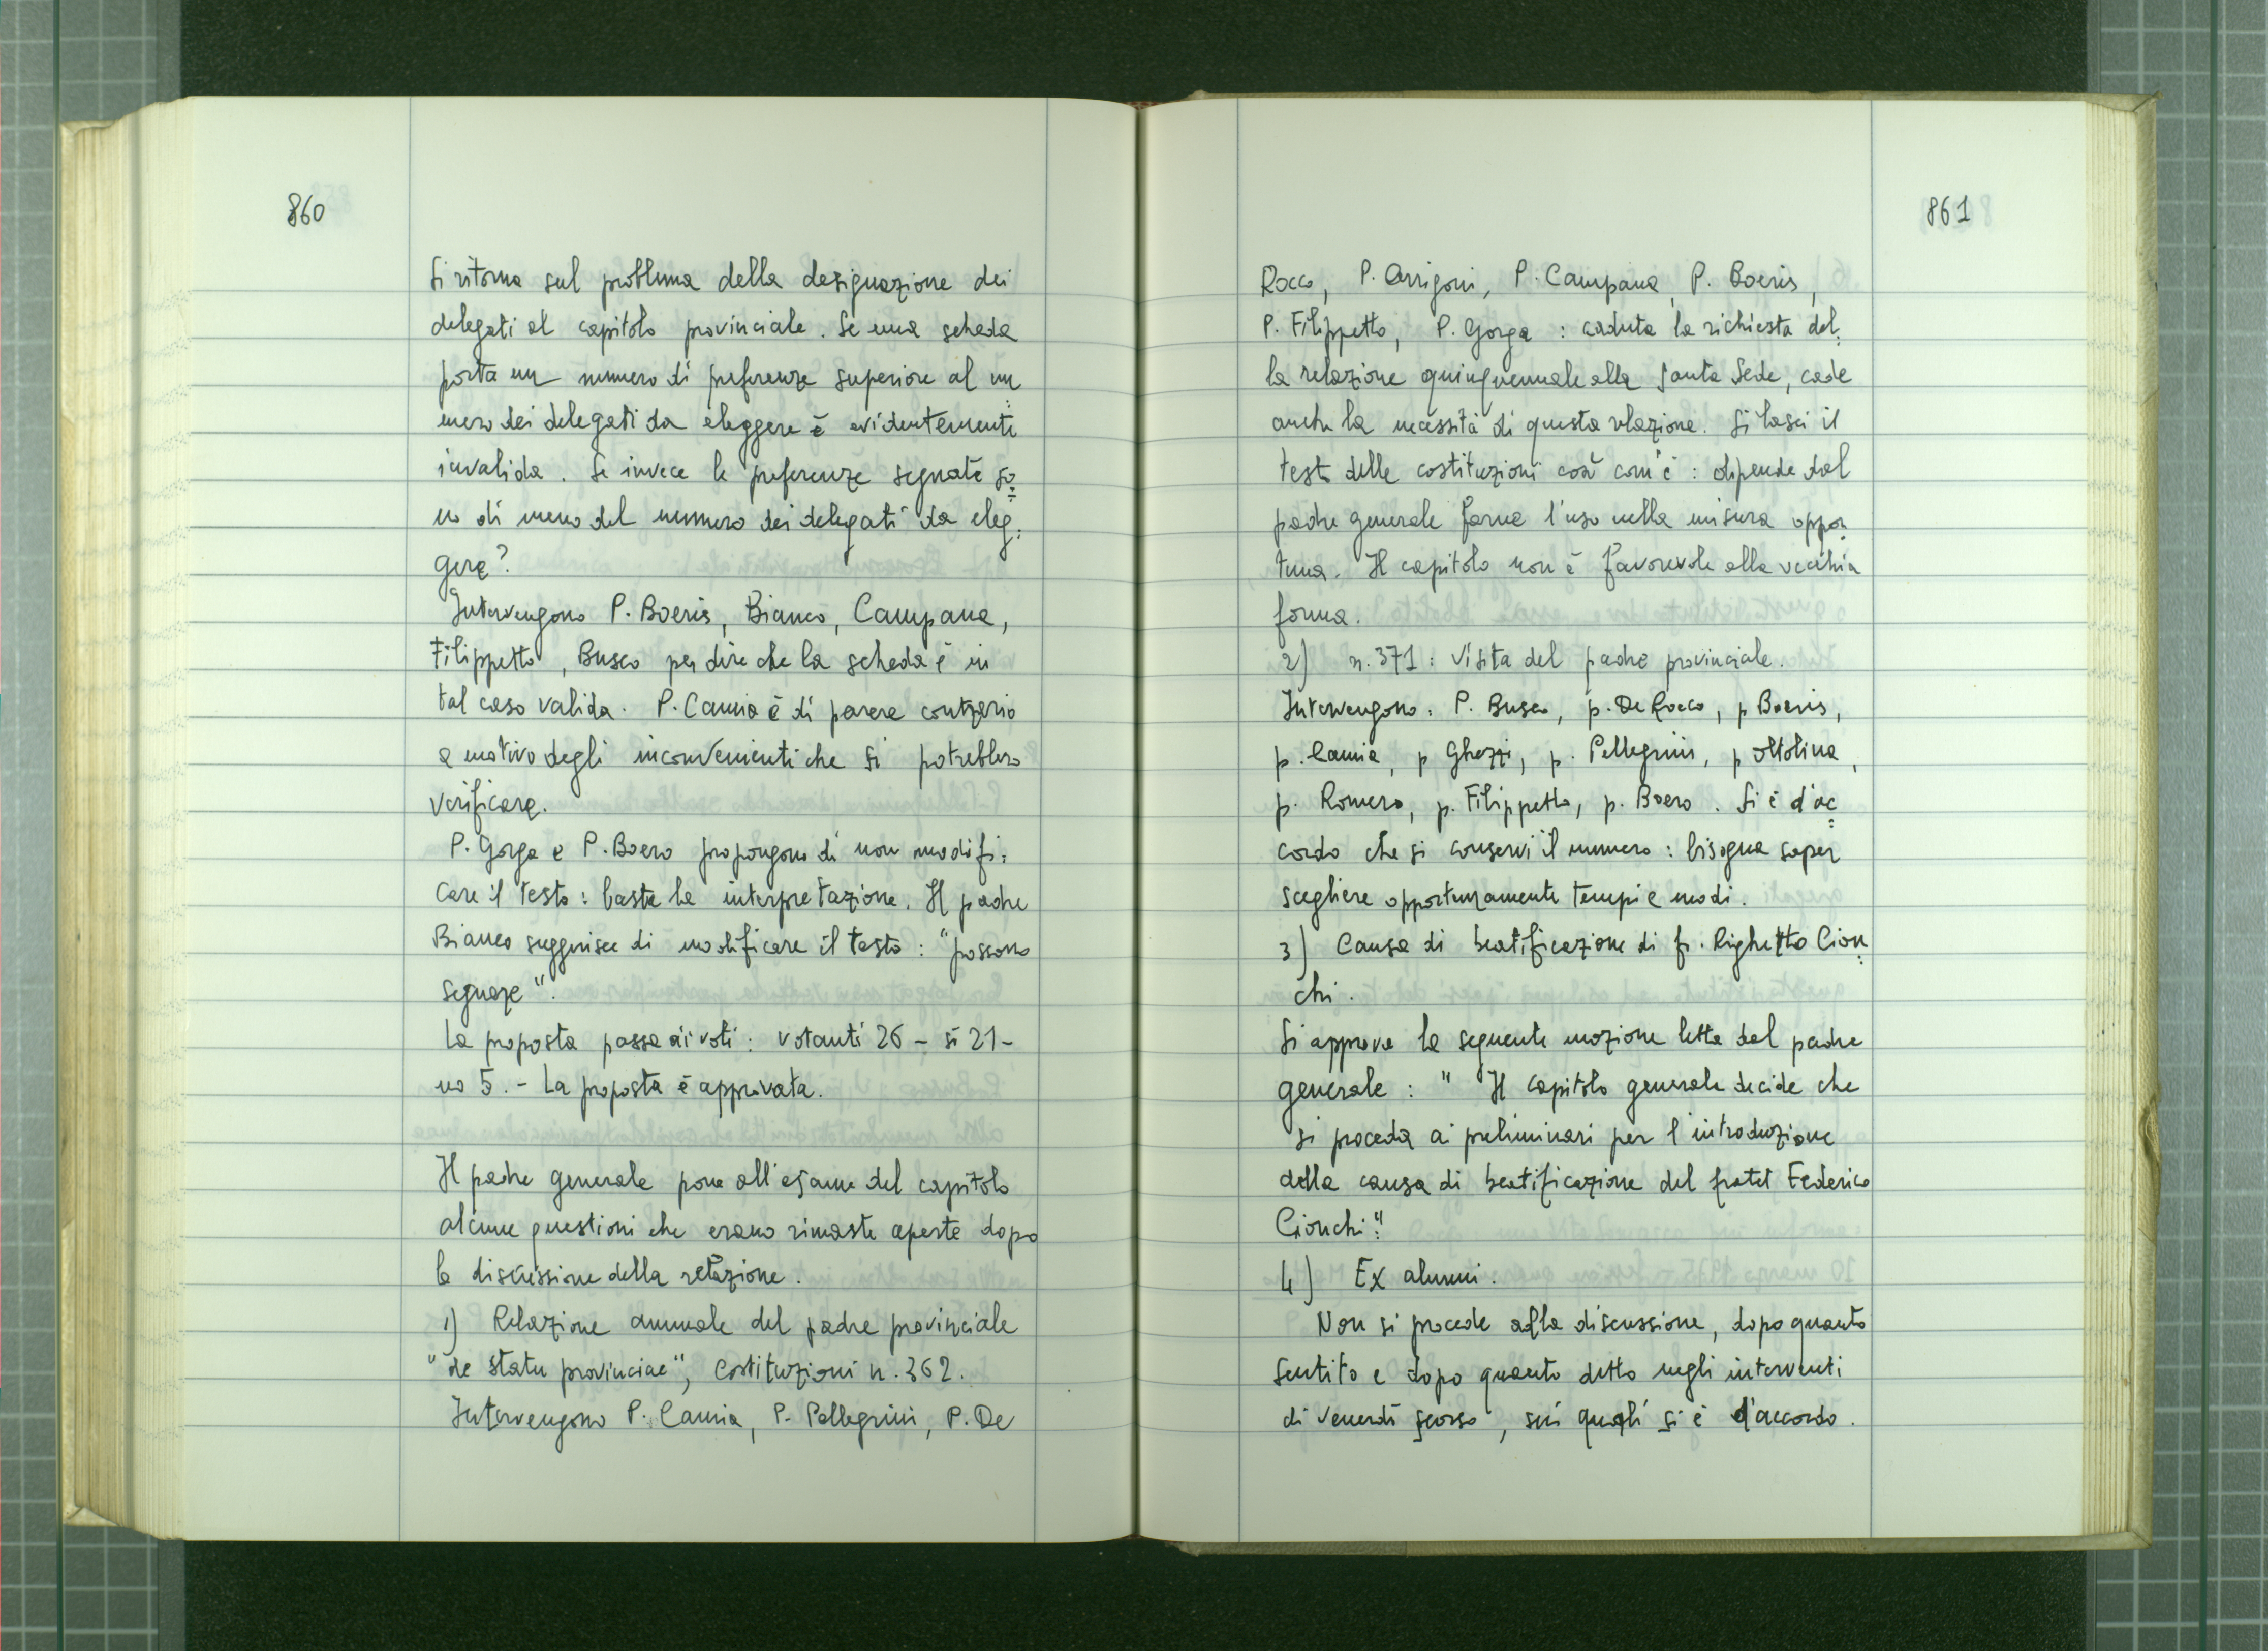 860
Si ritorna sul problema della designazione dei
delegati al capitolo provinciale. Se una scheda
porta un numero di preferenze superiore al nu=
mero dei delegati da eleggere è evidentemente
invalida. Se invece le preferenze segnate so=
no di meno del numero dei delegati da eleg=
gere?
Intervengono P. Boeris, Bianco, Campana,
Filippetto, Busco per dire che la scheda è in
tal caso valida. P. Camia è di parere contrario
a motivo degli inconvenienti che si potrebbero
verificare.
P. Gorga e P. Boero propongono di non modifi=
care il testo: basta la interpretazione. Il padre
Bianco suggerisce di modificare il testo: "possono
segnare".
La proposta passa ai voti: votanti 26 - sì 21 -
no 5. - La proposta è approvata.
Il padre generale pone all'esame del capitolo
alcune questioni che erano rimaste aperte dopo
la discussione della relazione.
1) Relazione annuale del padre provinciale
"de statu provinciae", Costituzioni n. 362.
Intervengono P. Camia, P. Pellegrini, P. De
861
Rocco, P. Arrigoni, P. Campana, P. Boeris,
P. Filippetto, P. Gorga: caduta la richiesta del=
la relazione quinquennale alla Santa Sede, cade
anche la necessità di questa relazione. Si lasci il
testo delle costituzioni così com'è: dipende dal
padre generale farne l'uso nella misura oppor=
tuna. Il capitolo non è favorevole alla vecchia
forma.
2) n. 371: visita del padre provinciale.
Intervengono: P. Busco, p. De Rocco, p Boeris,
p. Camia, p Ghezzi, p. Pellegrini, p Ottolina,
p. Romero, p. Filippetto, p. Boero. Si è d'ac=
cordo che si conservi il numero: bisogna saper
scegliere opportunamente tempi e modi.
3) Causa di beatificazione di fr. Righetto Cion=
chi.
Si approva la seguente mozione letta dal padre
generale: "Il capitolo generale decide che
si proceda ai preliminari per l'introduzione
della causa di beatificazione del fratel Federico
Cionchi".
4) Ex alunni.
Non si procede alla discussione, dopo quanto
sentito e dopo quanto detto negli interventi
di venerdì scorso, sui quali si è d'accordo.